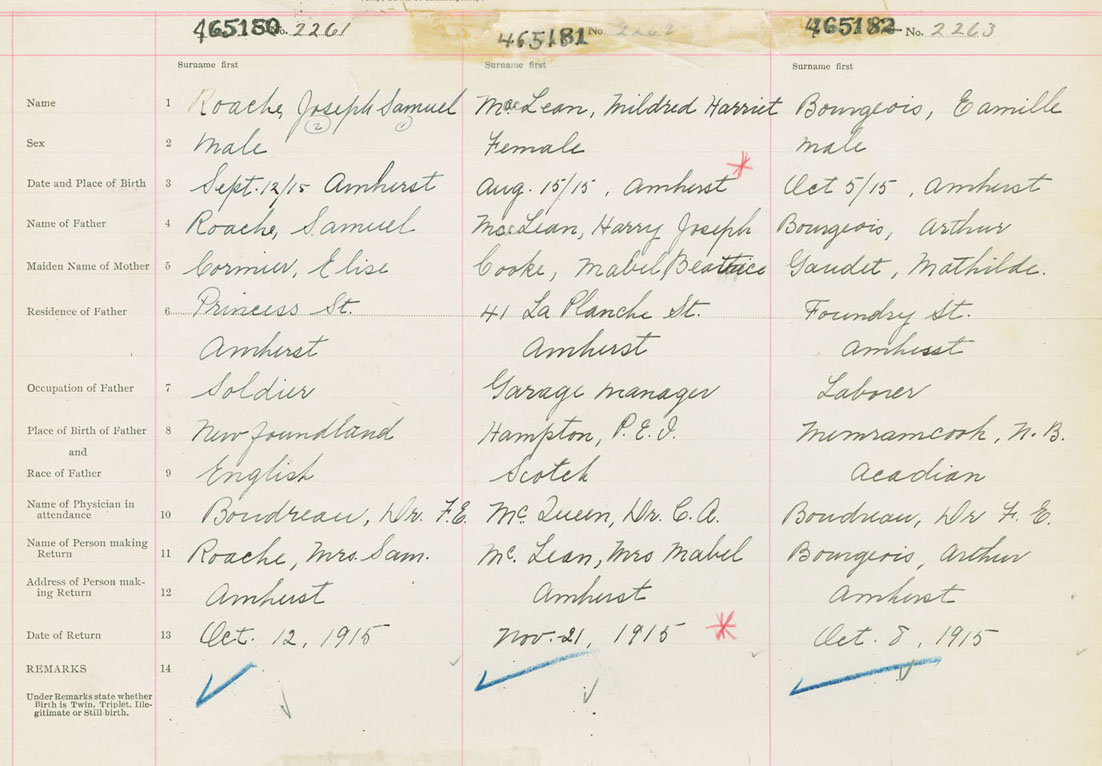 465180 No. 2261 465181 No 2262 465182 No. 2263
Surname first Surname first Surname first
Name 1 Roache, Joseph Samuel McLean, Mildred Harriet Bourgeois, Camille
2 1
Sex 2 Male Female male
Date and Place of Birth 3 Sept. 12/15 Amherst Aug. 15/15, Amherst Oct 5/15, Amherst
Name of Father 4 Roache, Samuel MacLean, Harry Joseph Bourgeois, Arthur
Maiden Name of Mother 5 Cormier, Elise Cooke, Mabel Beatrice Gaudet, Mathilde.
Residence of Father 6 Princess St. 41 La Planche St. Foundry St.
Amherst Amherst Amherst
Occupation of Father 7 Soldier Garage manager Laborer
Place of Birth of Father 8 Newfoundland Hampton, P.E.I. Memramcook, N.B.
and
Race of Father 9 English Scotch Acadian
Name of Physician in
attendance 10 Boudreau, Dr. F.E. Mc Queen, Dr. C.A. Boudreau, Dr F.E.
Name of Person making
Return 11 Roache, Mrs. Sam. Mc. Lean, Mrs Mabel Bourgeois, Arthur
Address of Person mak-
ing Return 12 Amherst Amherst Amherst
Date of Return 13 Oct. 12, 1915 Nov. 21, 1915 Oct. 8, 1915
REMARKS 14
Under Remarks state whether
Birth is Twin, Triplet, Ille-
gitimate or Still-birth.